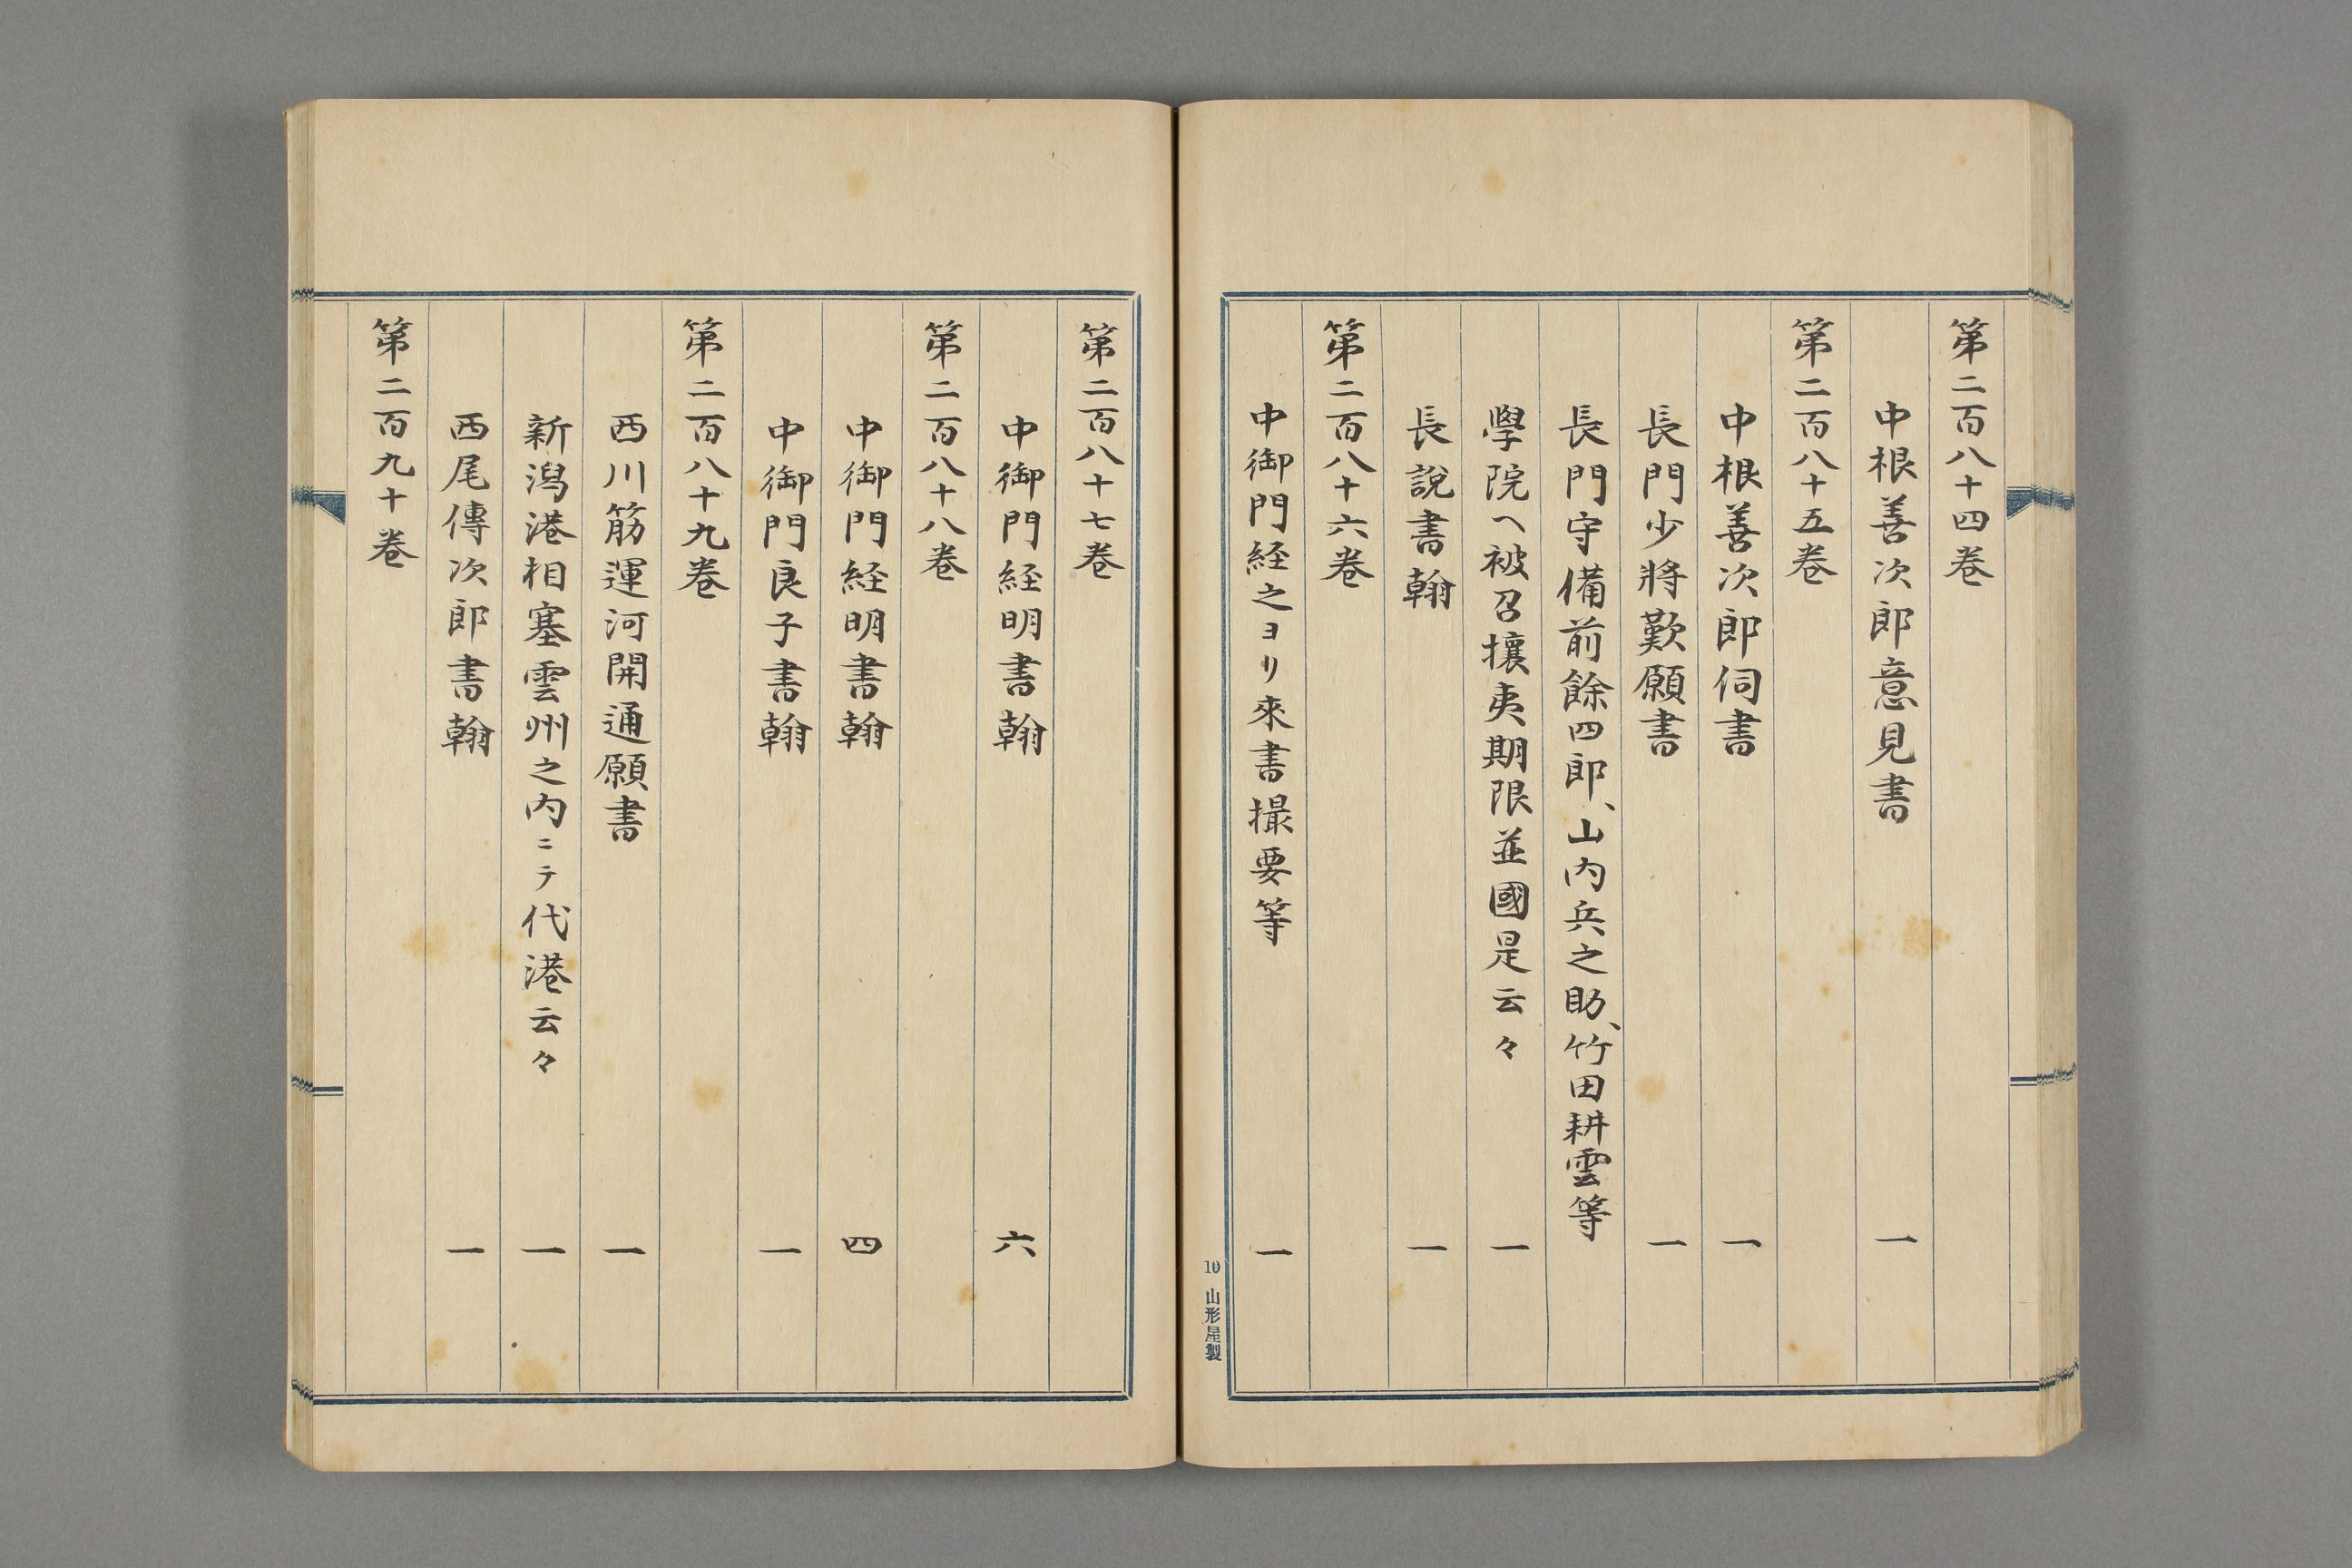 第二百八十四卷
中根善次郎意見書 一
第二百八十五卷
中根善次郎伺書 一
長門少將歎願書 一
長門守備前餘四郎、山内兵之助、竹田耕雲等
學院ヘ被召攘夷期限並國是云々 一
長說書翰 一
第二百八十六卷
中御門経之ヨリ來書撮要等 一
10 山形屋製
第二百八十七卷
中御門経明書翰 六
第二百八十八卷
中御門経明書翰 四
中御門良子書翰 一
第二百八十九卷
西川筋運河開通願書 一
新潟港相塞雲州之内ニテ代港云々 一
西尾傳次郎書翰 一
第二百九十卷